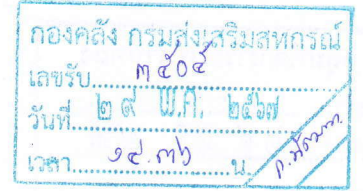 กองคลัง กรมส่งเสริมสหกรณ์
เลขรับ ๓๕๐๕
วันที่ ๒๙ พ.ค. ๒๕๖๗
เวลา ๑๕.๓๖ น.